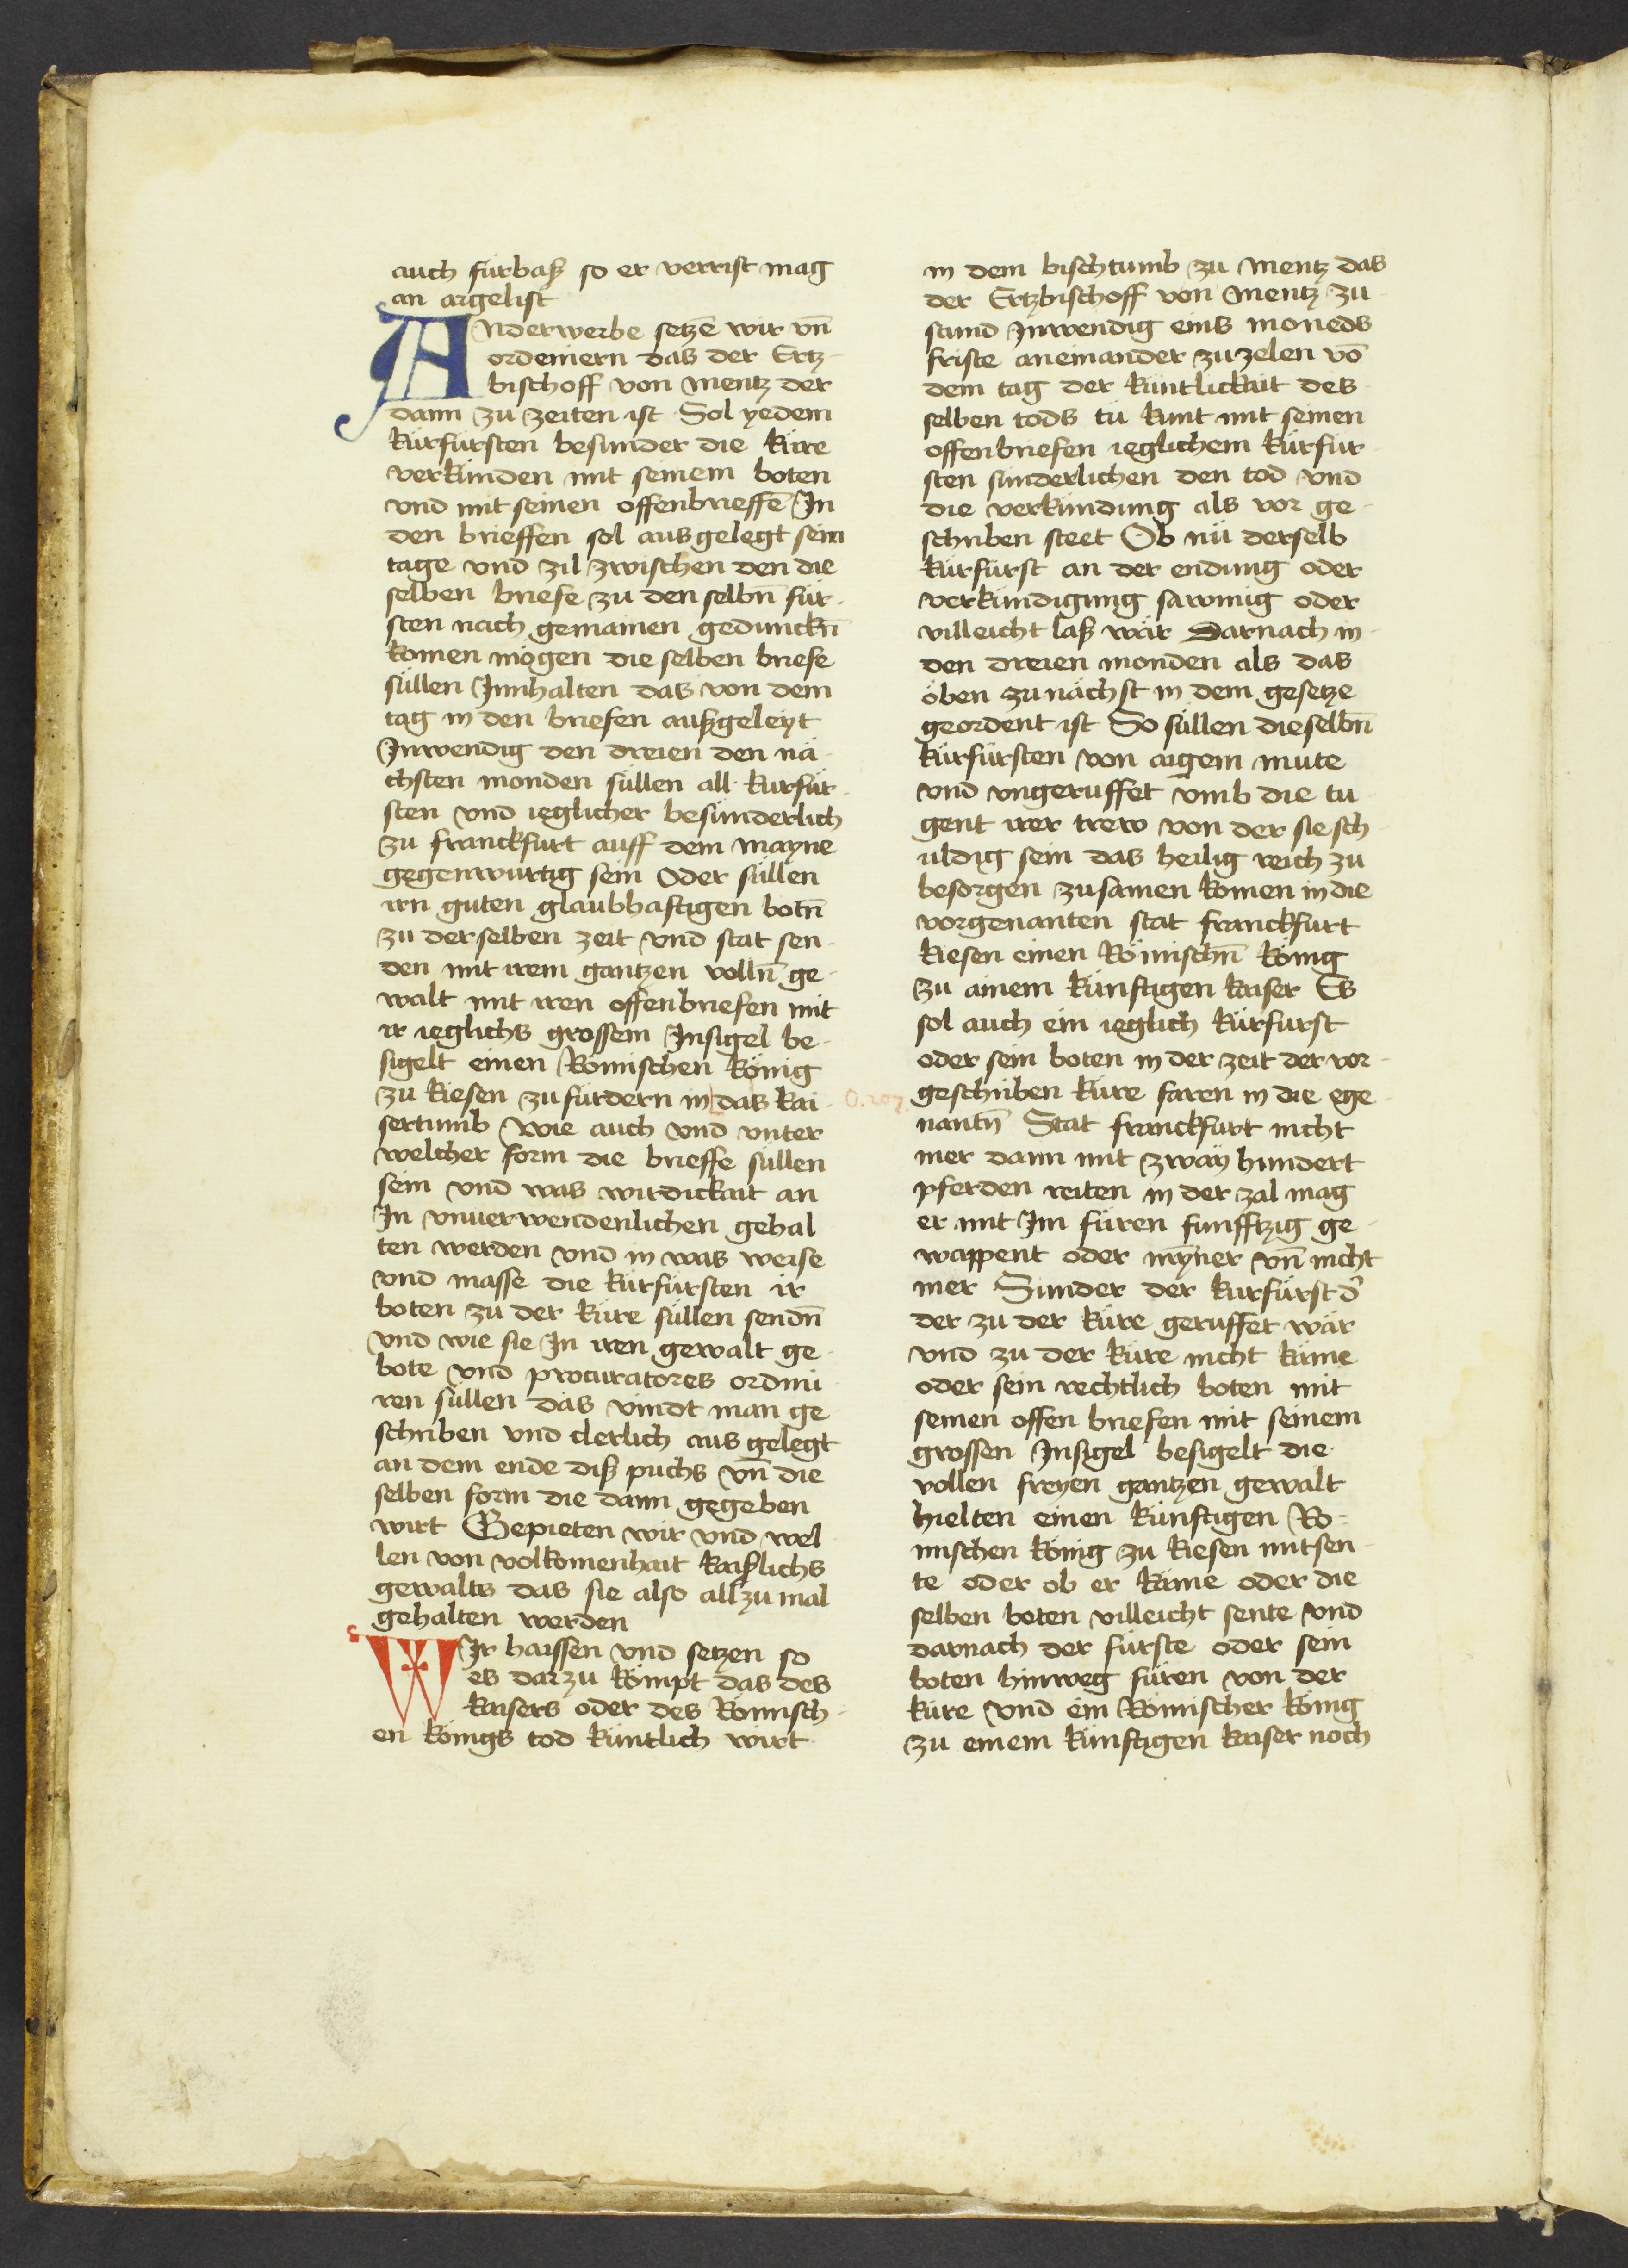 auch fürbaß so er verrist mag
an argelist
Anderwerbe setzē wir vn̄
ordeniern das der Ertz-
bischoff von Mentz der
dann zu zeiten ist Sol yedem
kürfürsten besunder die küre
verkünden mit seinem boten
vnd mit seinen offenbrieffē In
den brieffen sol ausgelegt sein
tage vnd zil zwischen den die
selben briefe zu den selbn̄ für-
sten nach gemainen gedunckn̄
komen mögen die selben briefe
süllen Innhalten das von dem
tag in den briefen außgeleyt
Inwendig den dreien den nä-
chsten monden süllen all kurfür-
sten vnd ieglicher besunderlich
zu franckfurt auff dem Mayne
gegenwurtig sein Oder süllen
irn guten glaubhaftigen botn̄
zu derselben zeit vnd stat sen-
den mit irem gantzen volln̄ ge-
walt mit iren offenbriefen mit
ir ieglichs grossem Insigel be-
sigelt einen Römischen König
zu kiesen zu fürdern in das kai-
sertumb Wie auch vnd vnter
welcher form die brieffe süllen
sein vnd was wirdickait an
In vnuerwendenlichen gehal
ten werden vnd in was weise
vnd masse die kürfürsten ir
boten zu der küre süllen sendn̄
vnd wie sie In iren gewalt ge-
bote vnd procuratores ordini
ren süllen das vindt man ge
schriben vnd clerlich aus gelegt
an dem ende diß puchs vn̄ die
selben form die dann gegeben
wirt Gepieten wir vnd wel
len von volkomenhait kaißlichs
gewalts das sie also allzu mal
gehalten werden
WIr haissen vnd setzen so
es darzu kömpt das des
kaisers oder des Römisch-
en königs tod küntlich wirt
in dem bischtumb zu Mentz das
der Ertzbischoff von Mentz zu
stund Inwendig eins moneds
friste aneinander zuzelen vō
dem tag der küntlickait des
selben tods tü kunt mit seinen
offenbriefen ieglichem kürfür
sten sunderlichen den tod vnd
die verkündung als vor ge-
schriben steet Ob nü derselb
kürfürst an der endung oder
verkündigung sawmig oder
villeicht laß wär Darnach in
den dreien monden als das
oben zunächst in dem gesetze
geordent ist So süllen dieselbn̄
kürfürsten von aigem mute
vnd vngeruffet vmb die tu
gent irer trew von der sie sch
uldig sein das heilig reich zu
besorgen zusamen komen in die
vorgenanten stat franckfurt
kiesen einen Römischn̄ König
zu ainem künftigen kaiser Es
sol auch ein ieglich kürfurst
oder sein boten in der zeit der vor-
geschriben küre faren in die ege
nantn̄ Stat franckfurt nicht
mer dann mit zway hundert
pferden reiten in der zal mag
er mit Im füren funfftzig ge-
wappent oder mȳner vn̄ nicht
mer Sunder der kurfürst d᷑
der zu der küre geruffet wär
vnd zu der küre nicht käme
oder sein rechtlich boten mit
seinen offen briefen mit seinem
grossen Insigel besigelt die
vollen freyen gantzen gewalt
hielten einen künftigen Rö-
mischen König zu kiesen nitsen
te oder ob er käme oder die
selben boten villeicht sente vnd
darnach der fürste oder sein
boten hinweg füren von der
küre vnd ein Römischer König
zu einem künftigen kaiser noch